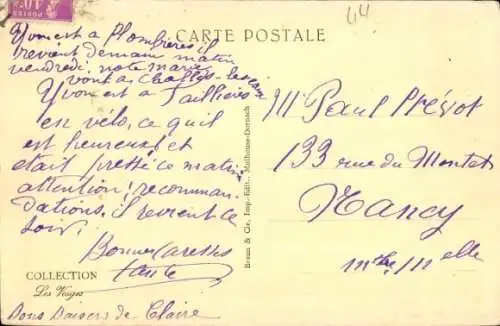 44
CARTE POSTALE
Yvon est a Plombières il
revient demain matin
vendredi, note
vont a Challes-les-eaux
Yvon est a
en vélo, ce qu'il
est heureux! et
était pressé ce matin
attention! recomman-
dations, il revient ce
soir!
Bonnes Caresses
tante
Bons Baisers de Claire
COLLECTION
Les Vosges
Braun & Cie, Imp.-Edit., Mulhouse-Dornach
M Paul Prévot
133 rue du Montet
Nancy
Mthe/Mlle